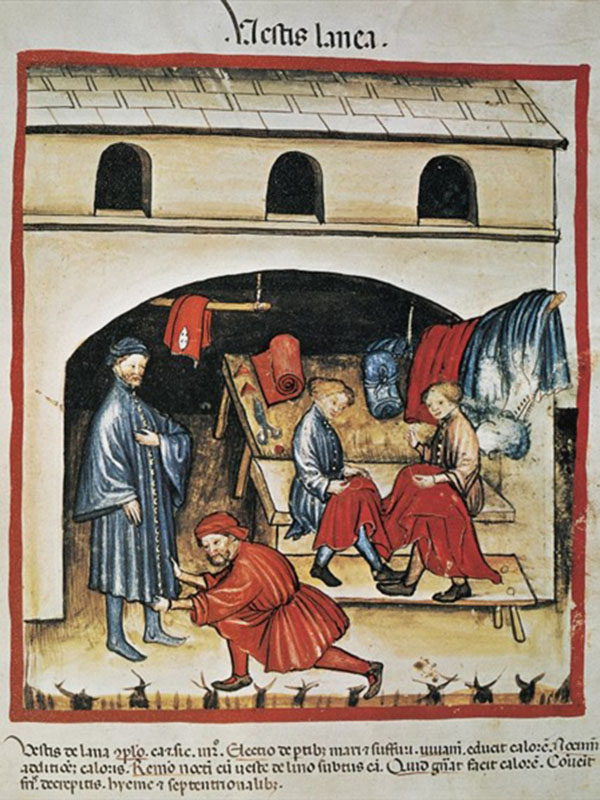 .Vestis lanea.
Vestis de lana ɔplo. ca. ⁊ sic. in .2°. Electio de ptibꝫ maris ⁊ suffuri. iuuam. educit calorē. Nocum
additiōe caloris. Remō nocti cū ueste de lino subtus eā. Quid gn̄at facit calorē. Conueit
fri. decrepitis. hyeme ⁊ septentrionalibꝫ.